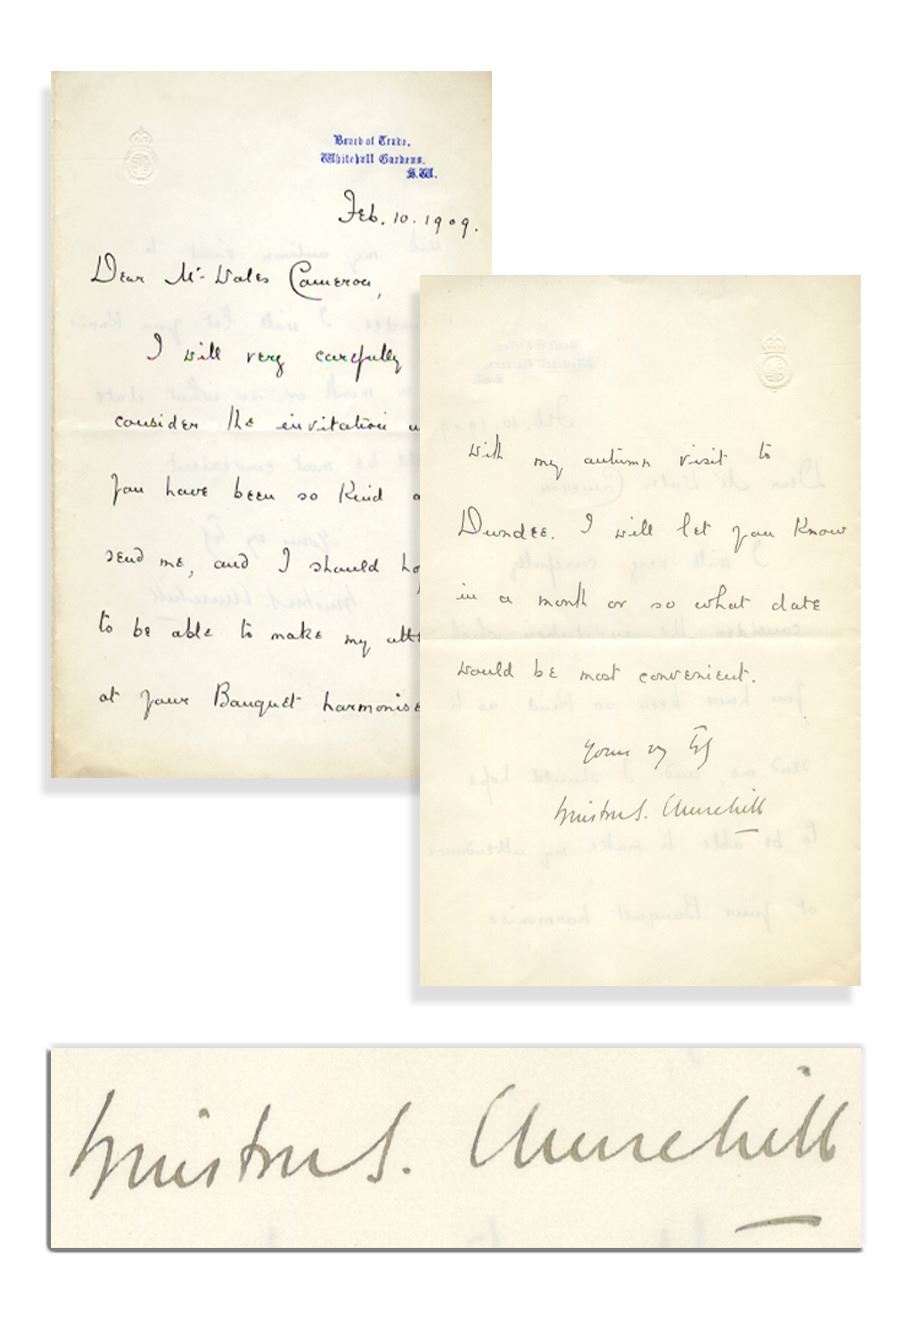 Board of Trade,
Whitehall Gardens.
S.W.
Feb. 10. 1909.
Dear Mr. Wales Cameron,
I will very carefully
consider the invitation
you have been so kind
send me, and I should
to be able to make my
at your Banquet harmonise
with my autumn visit to
Dundee. I will let you know
in a month or so what date
would be most convenient.
Yours vy
Winston S. Churchill
Winston S. Churchill